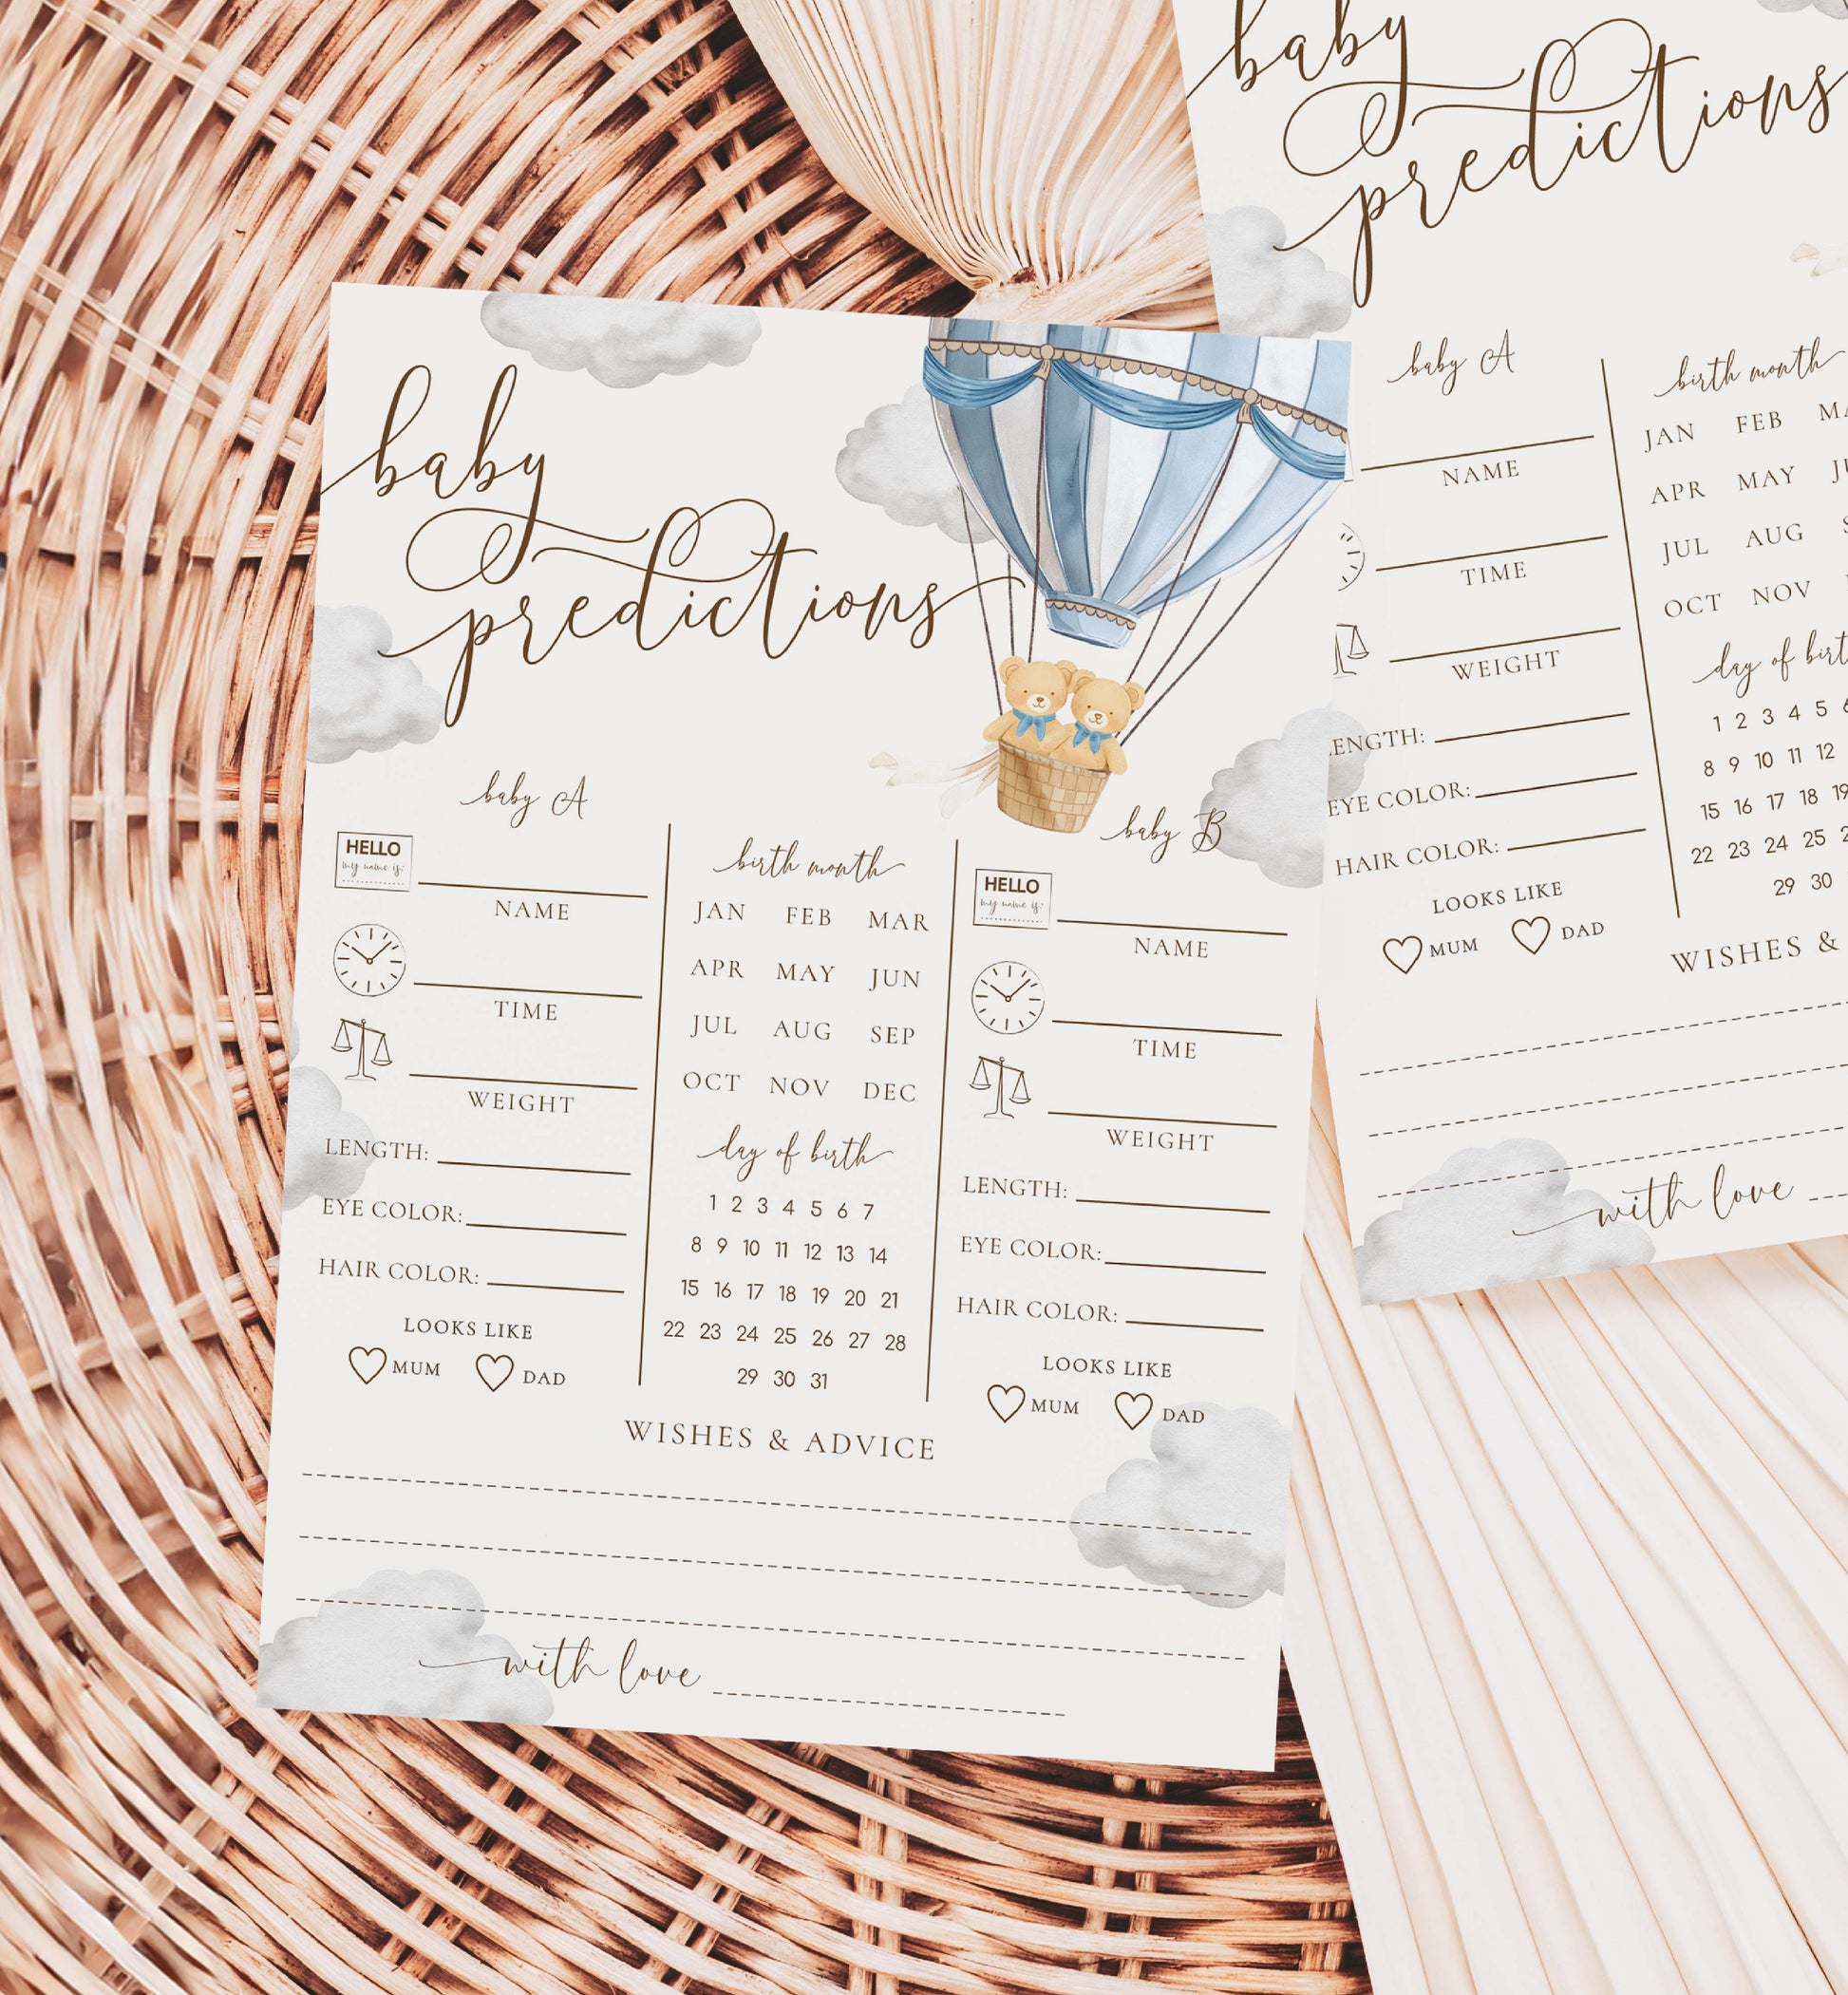 baby
predictions
baby A
HELLO
my name is:
NAME
TIME
WEIGHT
LENGTH:
EYE COLOR:
HAIR COLOR:
LOOKS LIKE
MUM DAD
birth month
JAN FEB MAR
APR MAY JUN
JUL AUG SEP
OCT NOV DEC
day of birth
1 2 3 4 5 6 7
8 9 10 11 12 13 14
15 16 17 18 19 20 21
22 23 24 25 26 27 28
29 30 31
baby B
HELLO
my name is:
NAME
TIME
WEIGHT
LENGTH:
EYE COLOR:
HAIR COLOR:
LOOKS LIKE
MUM DAD
WISHES & ADVICE
with love
baby
predictions
baby A
NAME
TIME
WEIGHT
LENGTH:
EYE COLOR:
HAIR COLOR:
LOOKS LIKE
MUM DAD
birth month
JAN FEB
APR MAY
JUL AUG
OCT NOV
day of
1 2 3 4 5
8 9 10 11 12
15 16 17 18 19
22 23 24 25
29 30
WISHES &
with love